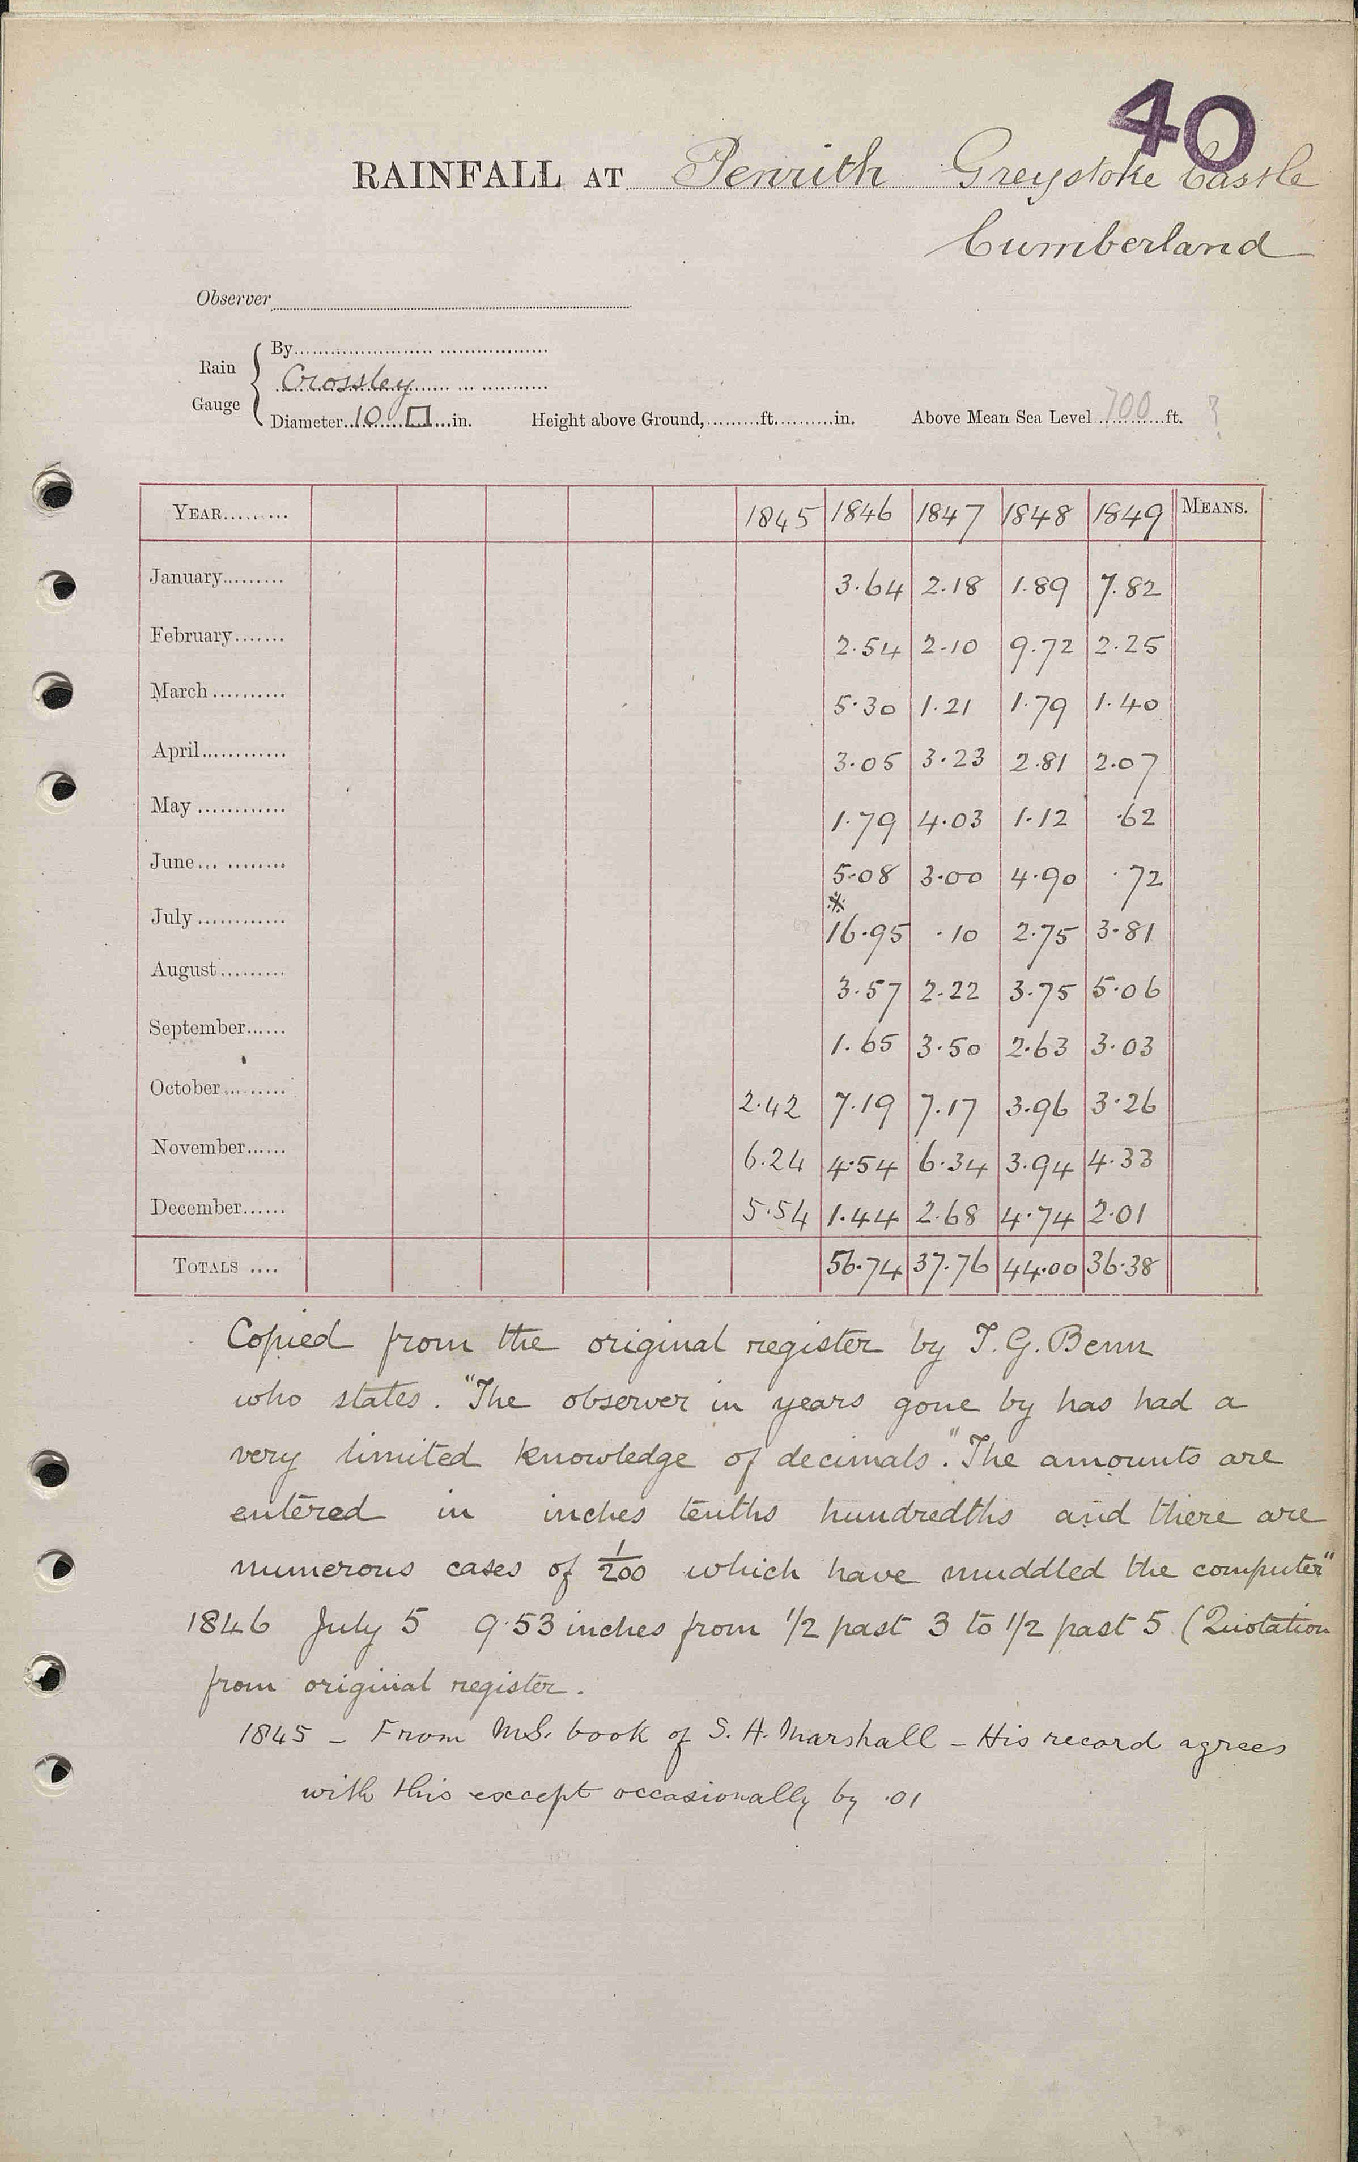 40
RAINFALL AT Penrith Greystoke Castle
Cumberland
Observer
Rain Gauge { By
Crossley
Diameter 10 □ in. Height above Ground, ft. in. Above Mean Sea Level 700 ft. ?
YEAR 1845 1846 1847 1848 1849 MEANS.
January 3.64 2.18 1.89 7.82
February 2.54 2.10 9.72 2.25
March 5.30 1.21 1.79 1.40
April 3.05 3.23 2.81 2.07
May 1.79 4.03 1.12 .62
June 5.08 3.00 4.90 .72
July *16.95 .10 2.75 3.81
August 3.57 2.22 3.75 5.06
September 1.65 3.50 2.63 3.03
October 2.42 7.19 7.17 3.96 3.26
November 6.24 4.54 6.34 3.94 4.33
December 5.54 1.44 2.68 4.74 2.01
TOTALS 56.74 37.76 44.00 36.38
Copied from the original register by T. G. Benn
who states. "The observer in years gone by has had a
very limited knowledge of decimals". The amounts are
entered in inches tenths hundredths and there are
numerous cases of 1/200 which have muddled the computer"
1846 July 5 9.53 inches from 1/2 past 3 to 1/2 past 5 (Quotation
from original register.
1845 - From M.S. book of S. A. Marshall - His record agrees
with this except occasionally by .01